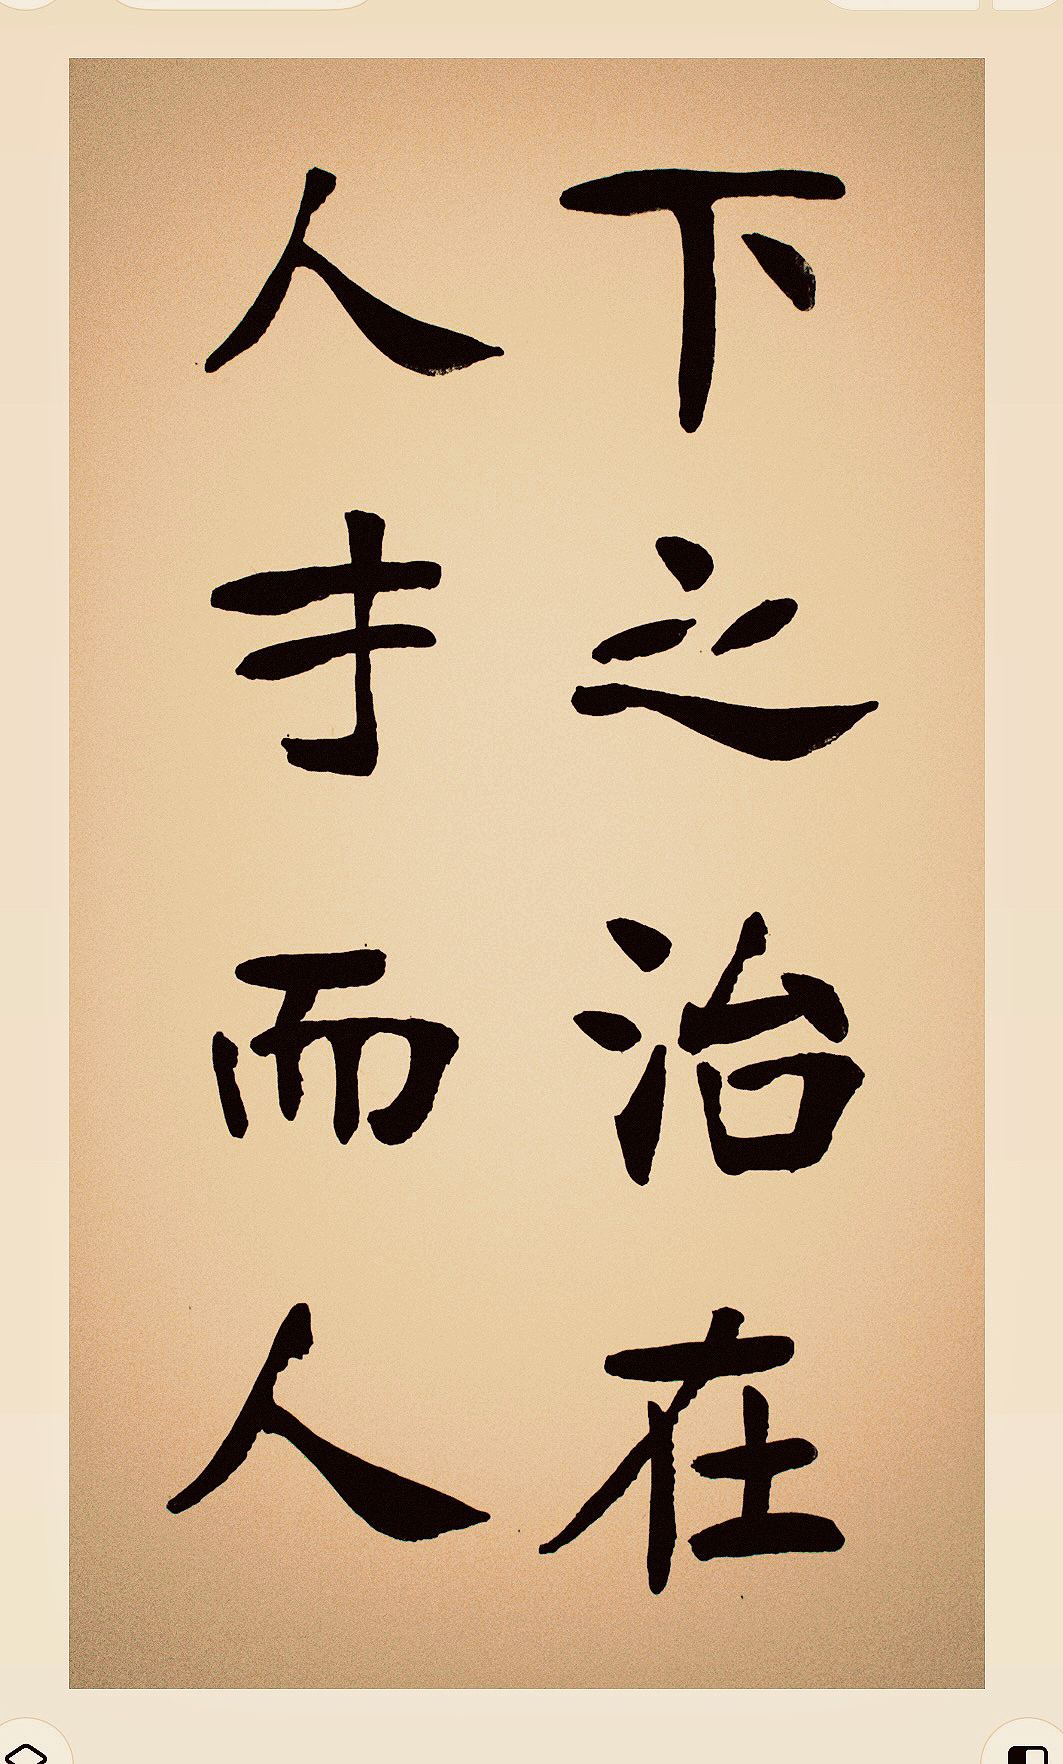 下之治在
人才而人